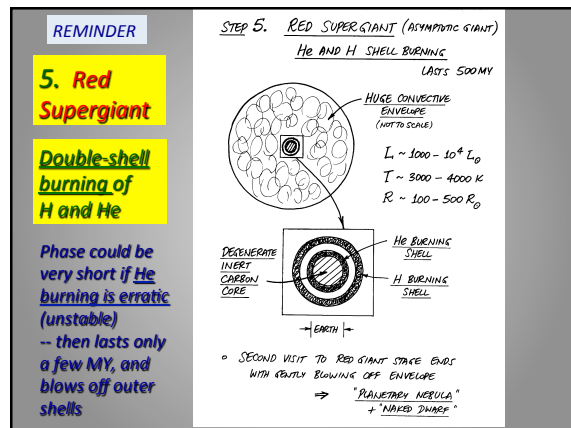 REMINDER
5. Red
Supergiant
Double-shell
burning of
H and He
Phase could be
very short if He
burning is erratic
(unstable)
-- then lasts only
a few MY, and
blows off outer
shells
STEP 5. RED SUPERGIANT (ASYMPTOTIC GIANT)
He AND H SHELL BURNING
LASTS 500MY
HUGE CONVECTIVE
ENVELOPE
(NOT TO SCALE)
L ~ 1000 - 10⁴ L⊙
T ~ 3000 - 4000 K
R ~ 100 - 500 R⊙
DEGENERATE
INERT
CARBON
CORE
He BURNING
SHELL
H BURNING
SHELL
EARTH
○ SECOND VISIT TO RED GIANT STAGE ENDS
WITH GENTLY BLOWING OFF ENVELOPE
⇒ "PLANETARY NEBULA"
+ "NAKED DWARF"